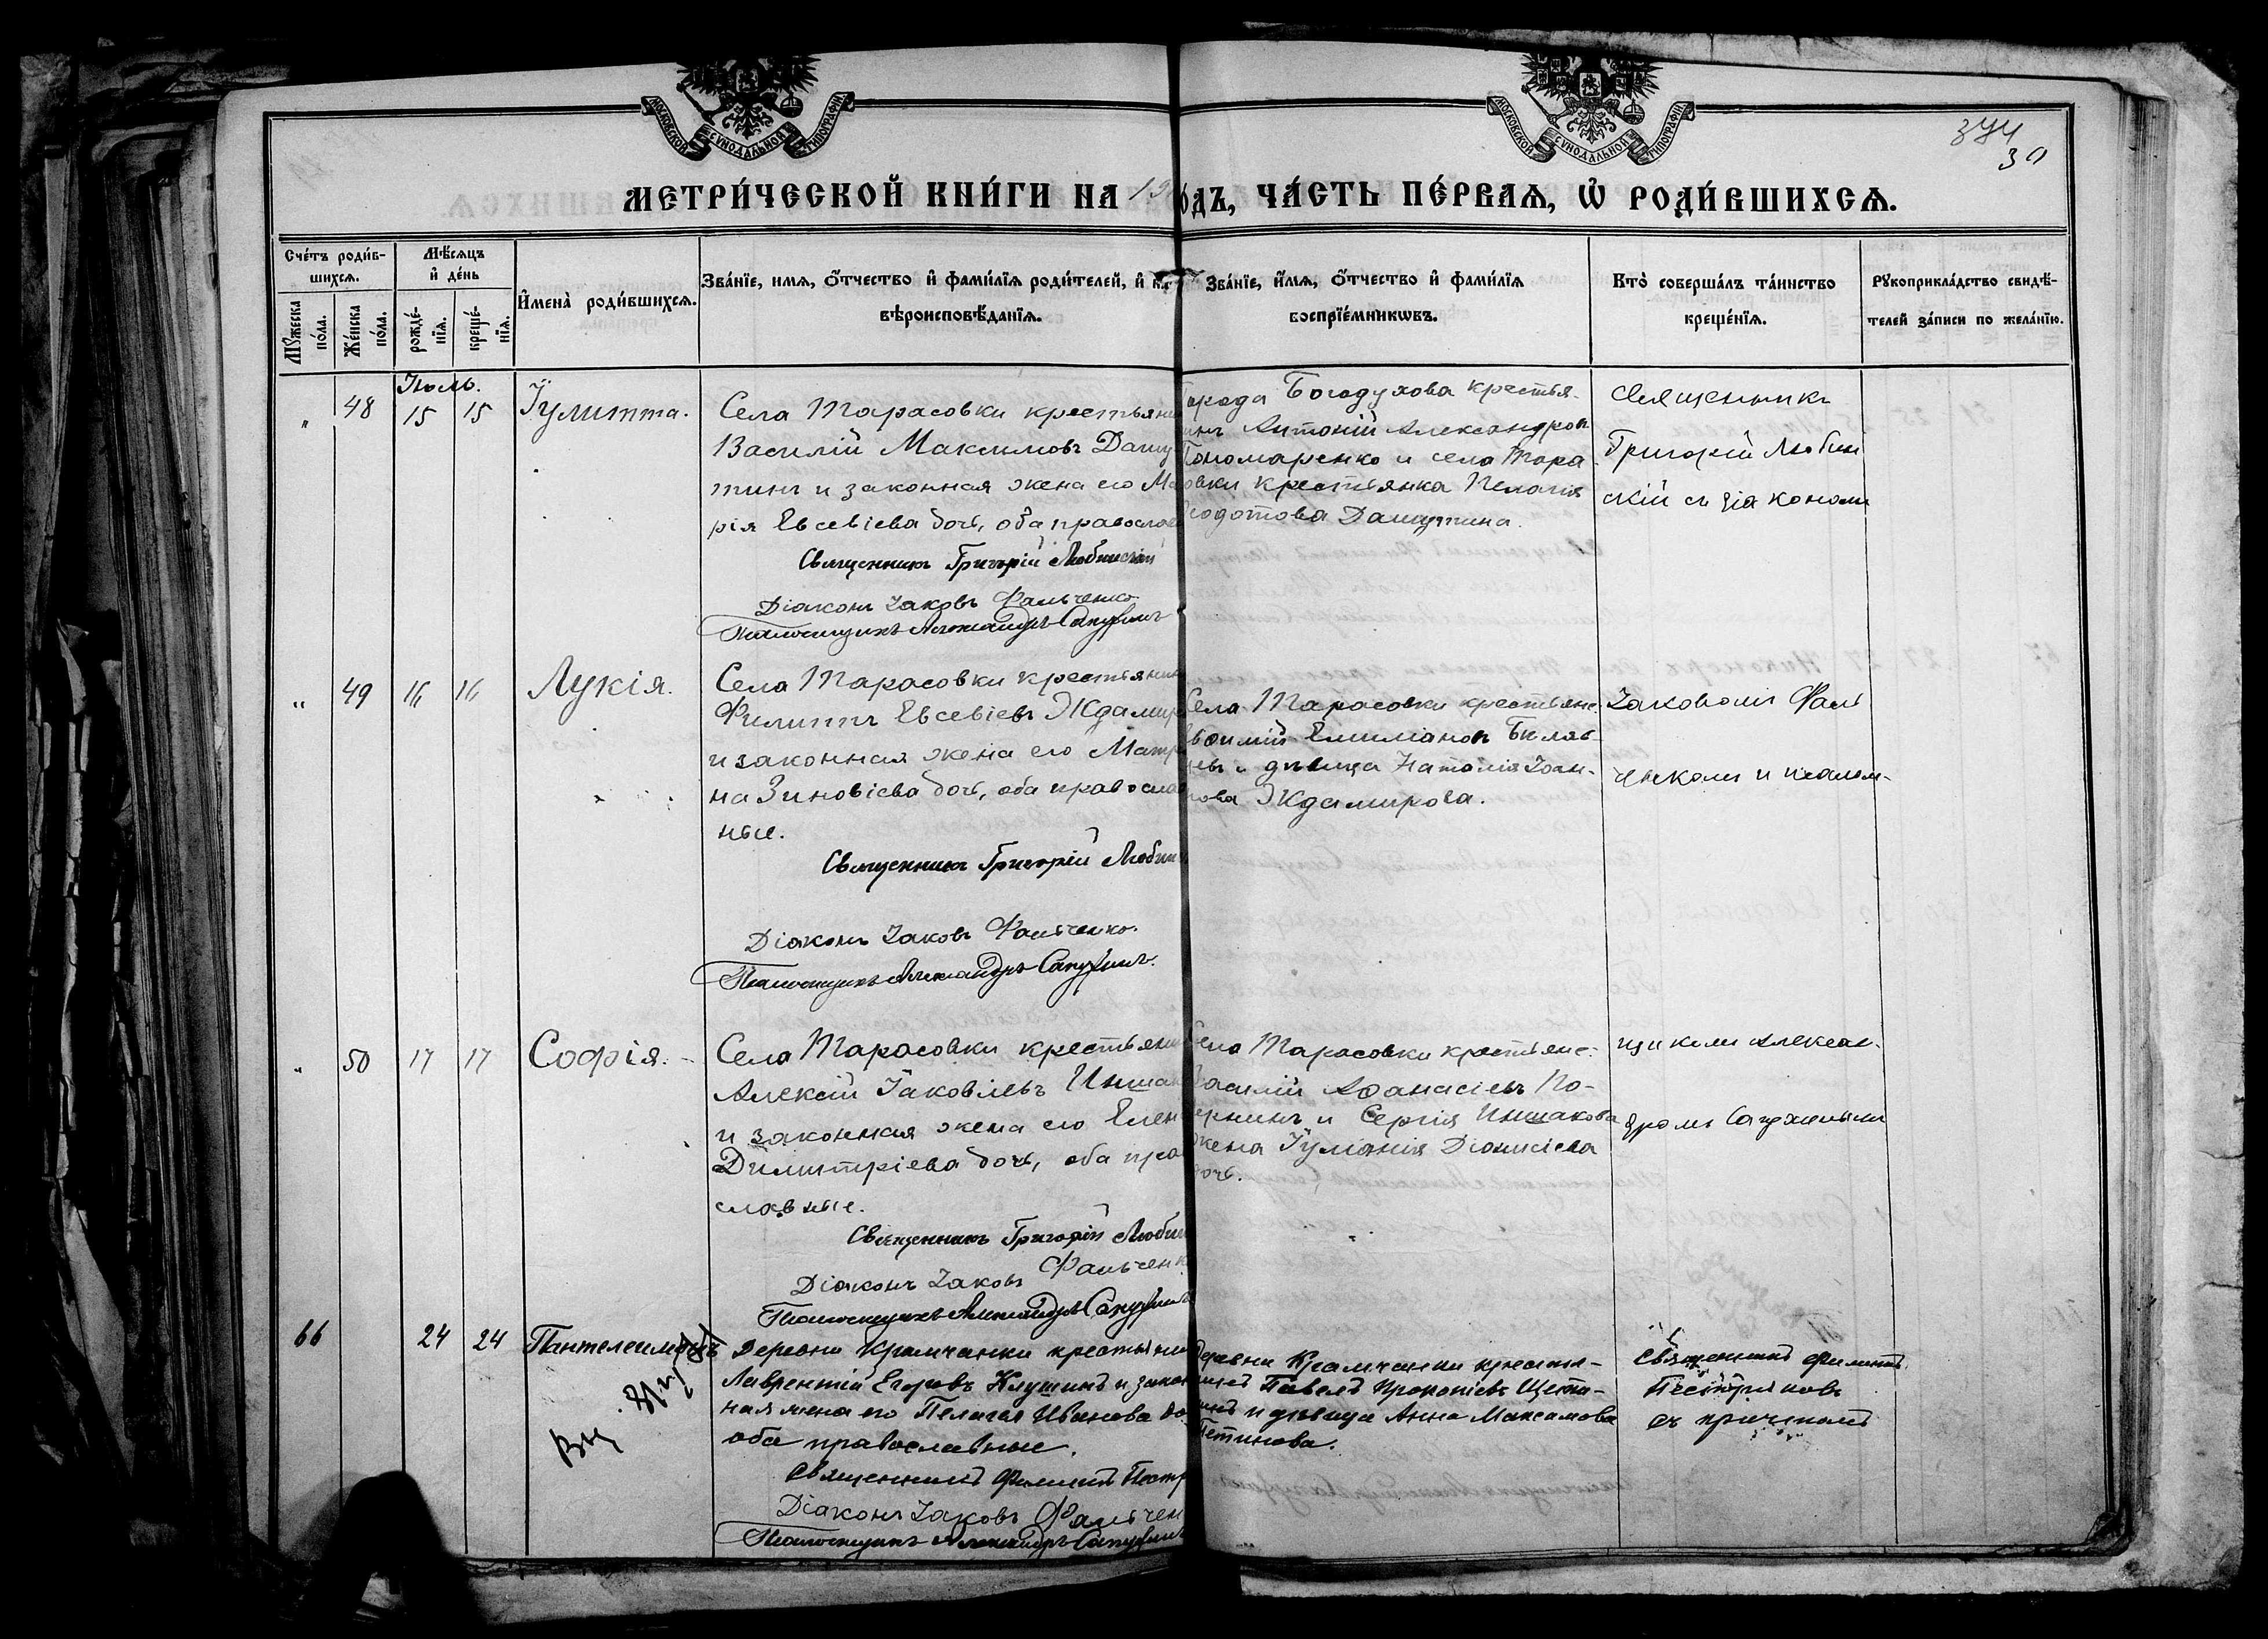 МОСКОВСКОЙ СѴНОДАЛЬНОЙ ТИПОГРАФІИ
МОСКОВСКОЙ СѴНОДАЛЬНОЙ ТИПОГРАФІИ
374
30
МЕТРИ́ЧЕСКОЙ КНИ́ГИ НА 19
ОДЪ, ЧА́СТЬ ПЕ́РВАѦ, Ѡ҆ РОДИ́ВШИХСѦ.
Сче́тъ роди́в-
шихсѧ.
Мѣ́сѧцъ
и҆ де́нь
Мꙋ́жеска
по́ла.
Же́нска
по́ла.
рожде́-
нїѧ.
креще́-
нїѧ.
И҆мена̀ роди́вшихсѧ.
Зва́нїе, имѧ, ѻ҆́тчество и҆ фами́лїѧ роди́телей, и҆ как
вѣроисповѣ́данїѧ.
Зва́нїе, и҆́мѧ, ѻ҆́тчество и҆ фами́лїѧ
воспрїе́мникѡвъ.
Кто̀ соверша́лъ та́инство
креще́нїѧ.
Рꙋкоприкла́дство свидѣ́-
телей за́писи по жела́нїю.
Июль.
" 48 15 15 Іулитта.
Села Тарасовки крестьянин
Василій Максимовъ Дашу
тинъ и законная жена его Ма
рія Евсевіева дочь, оба православ
Священникъ Григорій Любинскій
Діаконъ Іаковъ Фальченко.
Псаломщикъ Александръ Сапухинъ
орода Богодухова крестья-
инъ Антоній Александров
Пономаренко и села Тара
овки крестьянка Пелагія
Ѳеодотова Дашутина.
Священникъ
Григорій Любин
скій съ діаконом
" 49 16 16 Лукія.
Села Тарасовки крестьянин
Филиппъ Евсевіевъ Ждамир
и законная жена его Матр
на Зиновіева дочь, оба православ
ные.
Священникъ Григорій Любин
Діаконъ Іаковъ Фальченко.
Псаломщикъ Александръ Сапухинъ.
Села Тарасовки крестьяне
вѳимій Емиліанов Биляв-
евъ и дѣвица Наталія Іоан-
нова Ждамирова.
Іаковомъ Фаль
ченкомъ и псалом-
" 50 17 17 Софія.
Села Тарасовки крестьянин
Алексій Іаковлевъ Иншак
и законная жена его Елен
Димитріева дочь, оба пра
славные.
Священникъ Григорій Любин
Діаконъ Іаковъ Фальченк
Псаломщикъ Александръ Сапухинъ
ела Тарасовки крестьяне:
асилій Аѳанасіевъ По-
ернинъ и Сергія Иншакова
жена Іуліанія Діонисіева
дочь.
щикомъ Алексан-
дромъ Сапухинымъ
66 24 24 Пантелеимонъ
Деревни Крамчанки крестьянин
Лаврентій Егоровъ Клушинъ и закон
ная жена его Пелагея Иванова до
оба православные.
Священникъ Филиппъ Пестр
Діаконъ Іаковъ Фальчен
Псаломщикъ Александръ Сапухинъ
Деревни Крамчанки крестья-
нинъ Павелъ Прокопіевъ Щети-
инъ и дѣвица Анна Максимова
етинова.
Священникъ Филиппъ
Пестряковъ
съ причтомъ